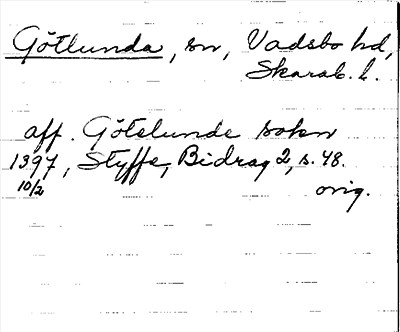 Götlunda, sn, Vadsbo hd,
Skarab. l.
aff. Götelunde sokn
1397, Styffe, Bidrag 2, s. 48.
10/2 orig.